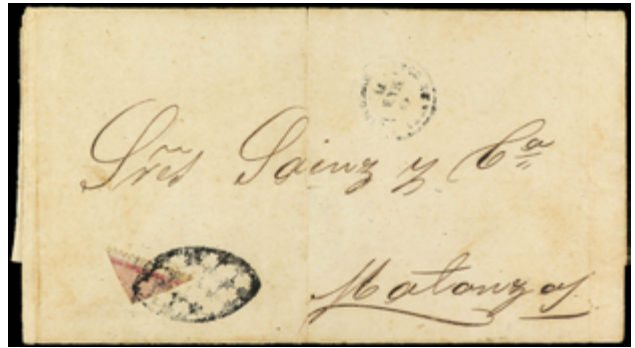 Sres Sainz y Ca
Matanzas